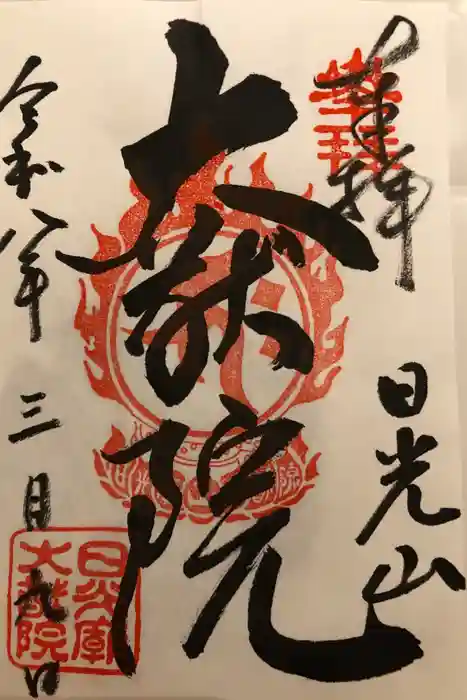 奉拝
日光山
大猷院
令和八年三月九日
日光廟
大猷院